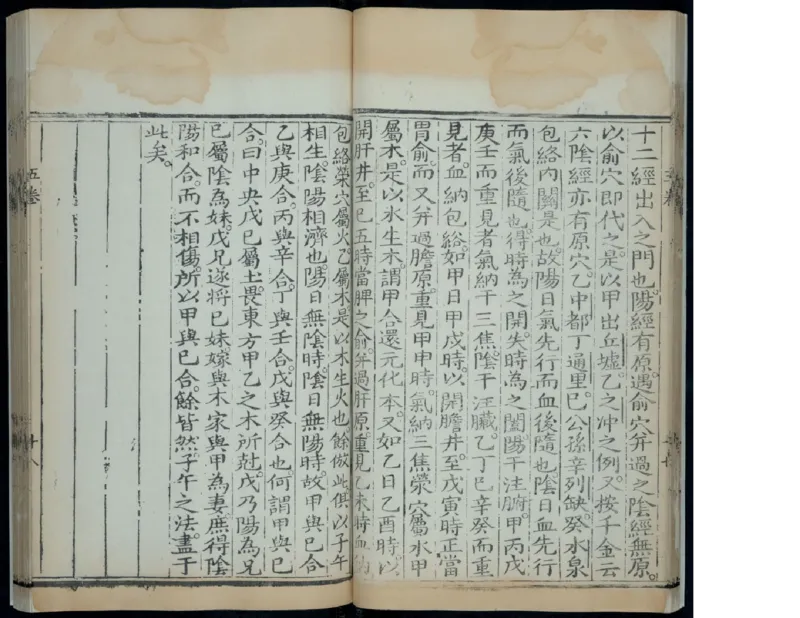 十二經出入之門也。陽經有原。遇俞穴并過之。陰經無原。
以俞穴即代之。是以甲出丘墟。乙之冲之例。又按千金云
六陰經亦有原穴。乙中都丁通里。巳公孫辛列缺。癸水泉
包絡內關是也。故陽日氣先行而血後隨也。陰日血先行
而氣後隨也。得時為之開。失時為之闔。陽干注腑。甲丙戊
庚壬而重見者氣納于三焦。陰干注臟。乙丁巳辛癸而重
見者。血納包絡。如甲日甲戌時。以開膽井。至戊寅時正當
胃俞。而又并過膽原。重見甲申時。氣納三焦。滎穴屬水。甲
屬木。是以水生木。謂甲合還元化本。又如乙日乙酉時。以
開肝井。至巳五時當脾之俞。并過肝原。重見乙未時血納
包絡滎穴屬火。乙屬木。是以木生火也。餘倣此。俱以子午
相生。陰陽相濟也。陽日無陰時。陰日無陽時。故甲與巳合
乙與庚合。丙與辛合。丁與壬合。戊與癸合也。何謂甲與巳
合。曰中央戊巳屬土。畏東方甲乙之木所尅。戊乃陽為兄
巳屬陰為妹。戊兄遂將巳妹。嫁與木家與甲為妻。庶得陰
陽和合。而不相傷。所以甲與巳合。餘皆然。子午之法。盡于
此矣。
五卷
十八